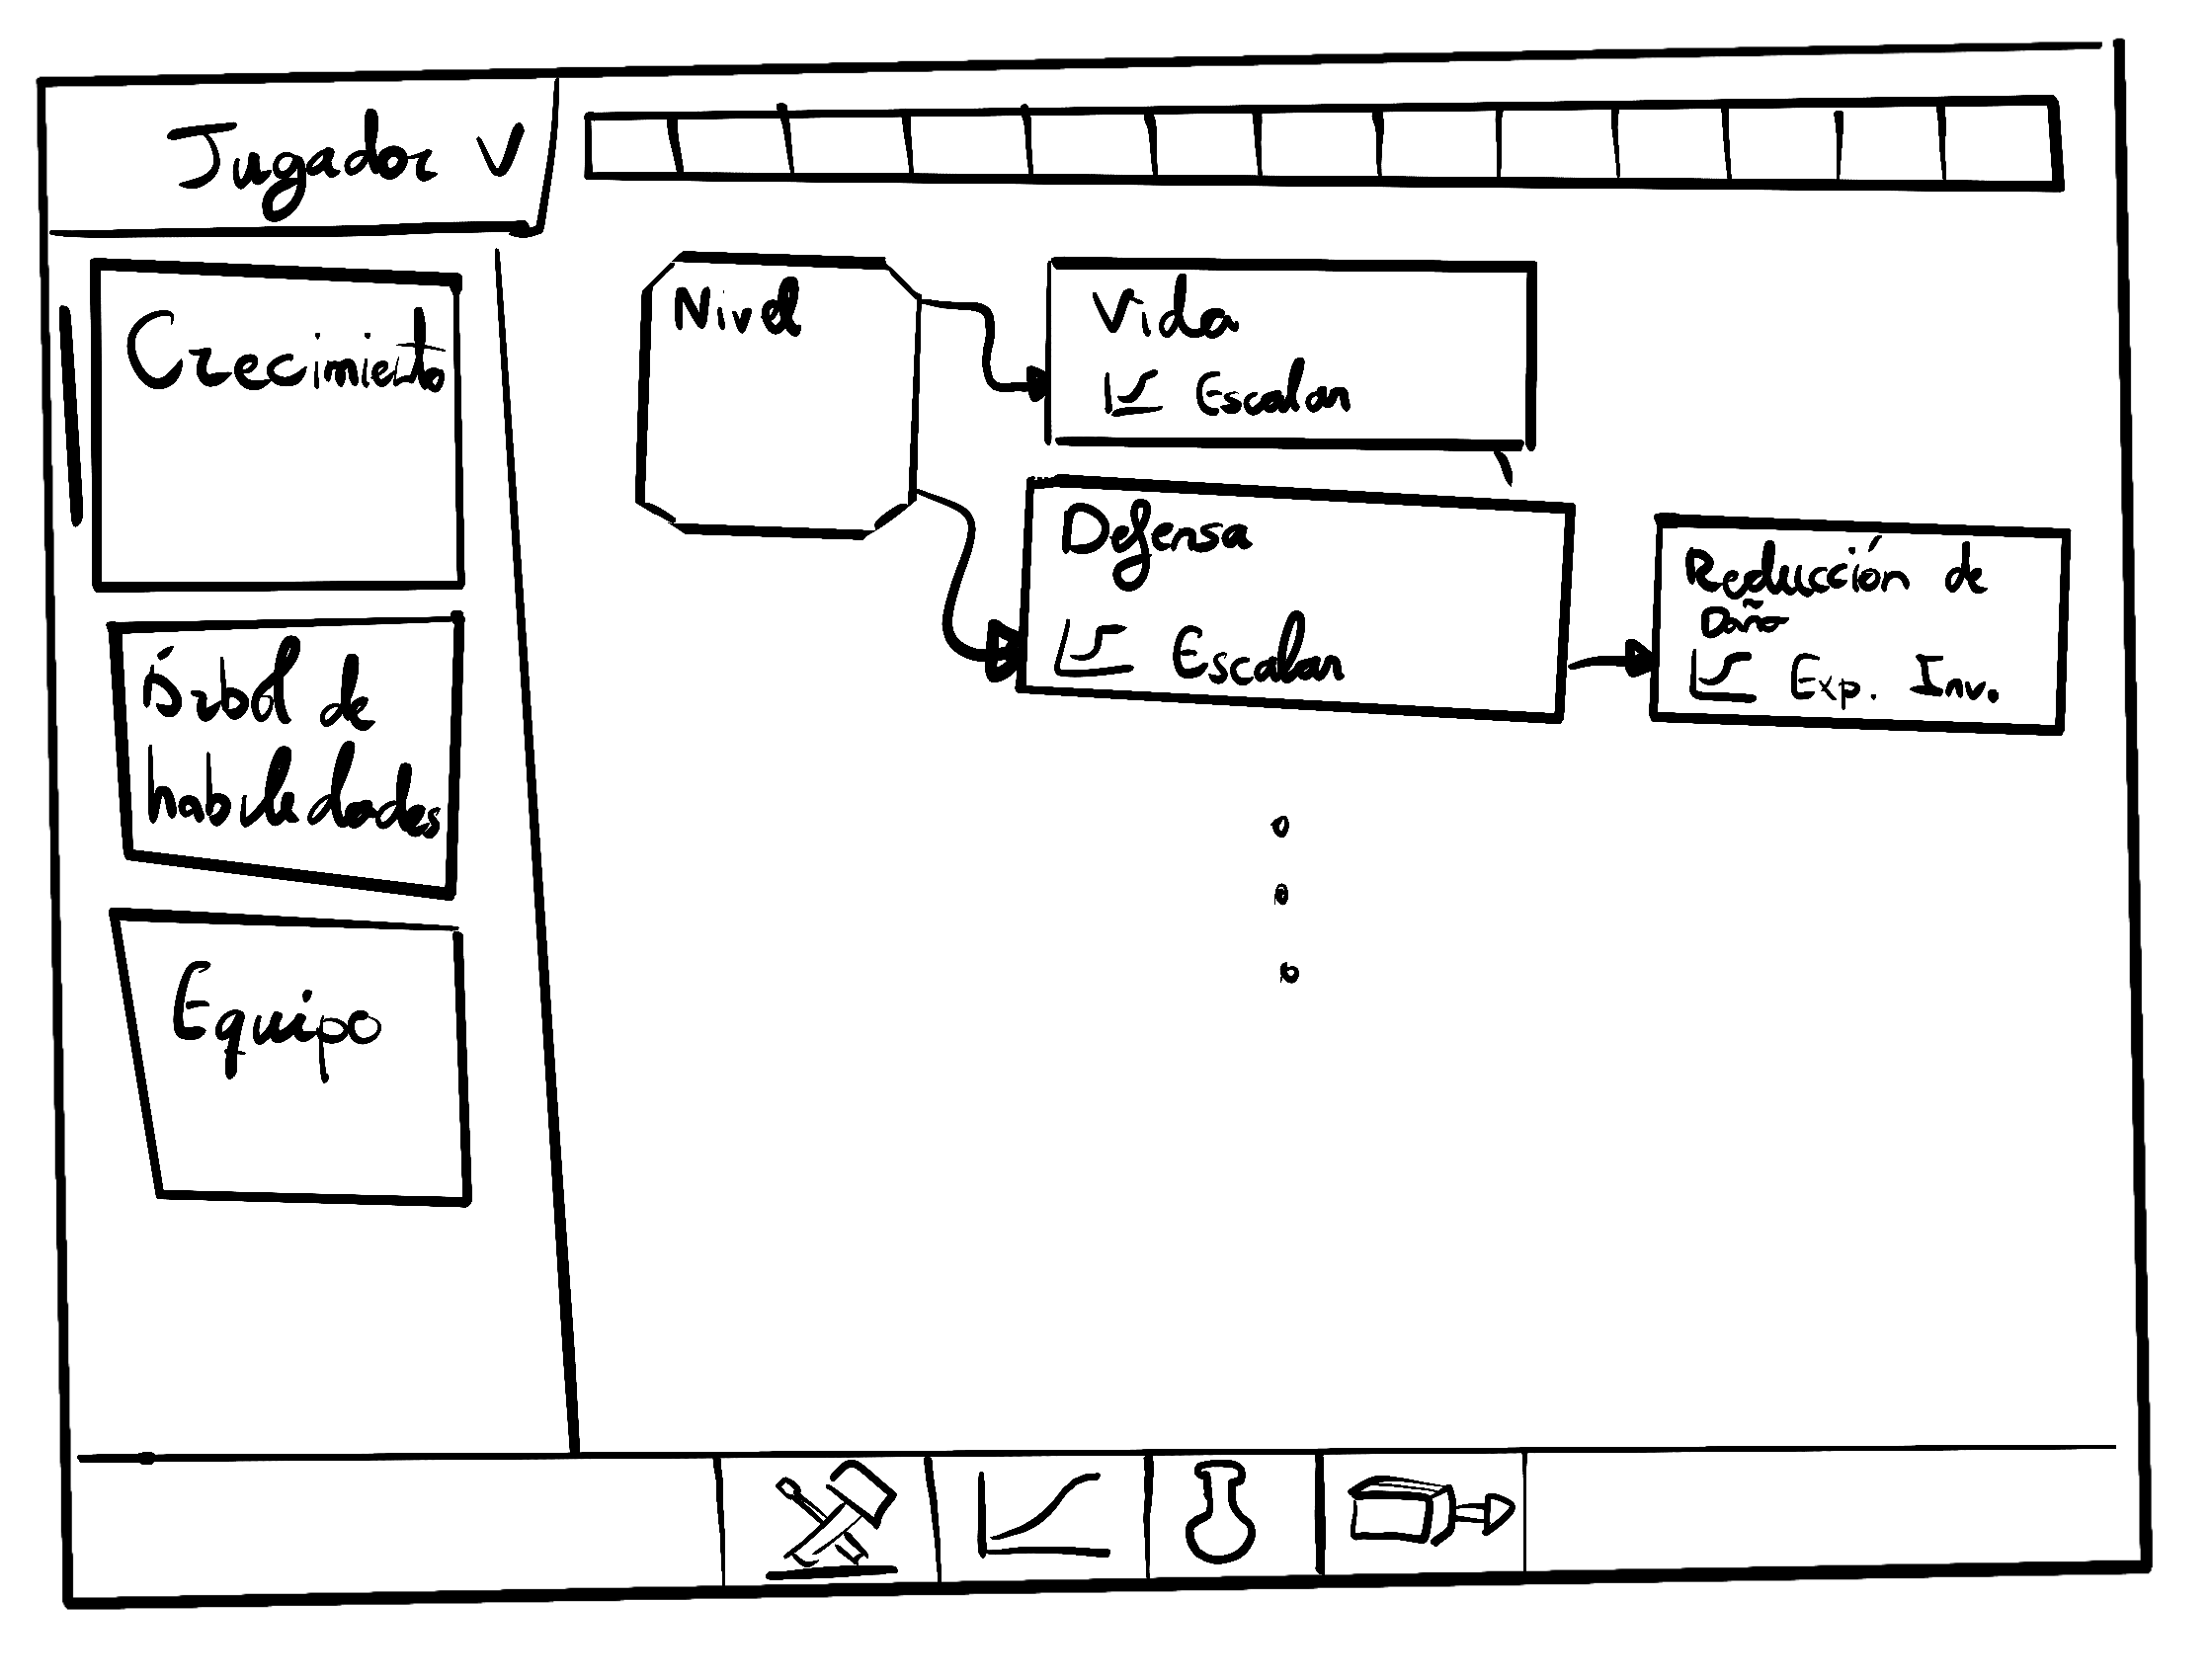 Jugador V
Crecimiento
Árbol de
habilidades
Equipo
Nivel
Vida
Escalar
Defensa
Escalar
Reducción de
Daño
Exp. Inv.